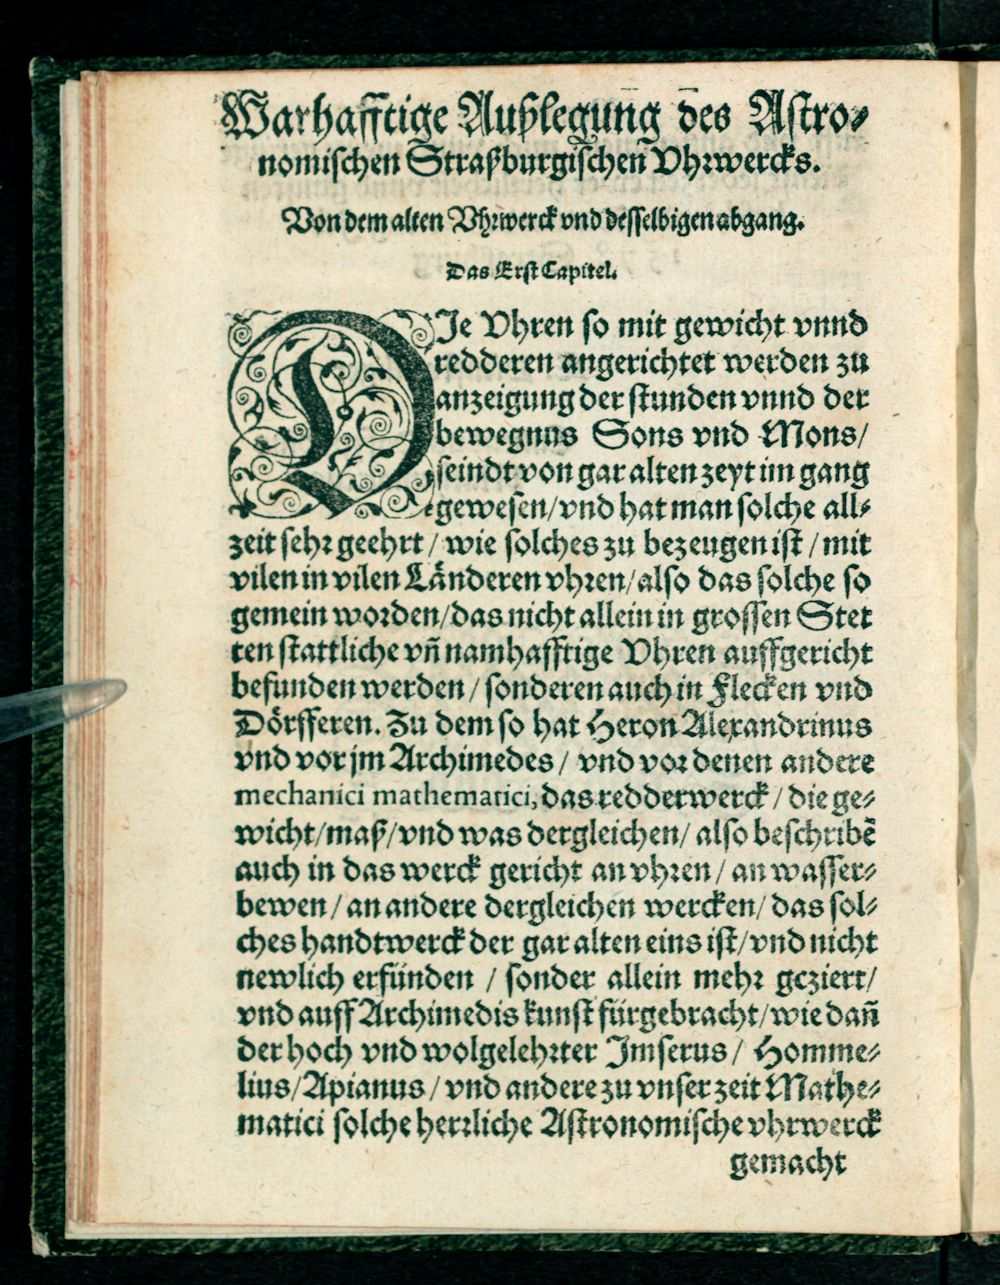 Warhafftige Außlegung des Astro⸗
nomischen Straßburgischen Vhrwercks.
Von dem alten Vhrwerck vnd desselbigen abgang.
Das Erst Capitel.
DIe Vhren so mit gewicht vnnd
redderen angerichtet werden zu
anzeigung der stunden vnnd der
bewegnus Sons vnd Mons/
seindt von gar alten zeyt im gang
gewesen/vnd hat man solche all⸗
zeit sehr geehrt/ wie solches zu bezeugen ist/mit
vilen in vilen Länderen vhren/also das solche so
gemein worden/das nicht allein in grossen Stet
ten stattliche vñ namhafftige Vhren auffgericht
befunden werden/ sonderen auch in Flecken vnd
Dörfferen. Zu dem so hat Heron Alexandrinus
vnd vor jm Archimedes/ vnd vor denen andere
mechanici mathematici, das redderwerck/ die ge⸗
wicht/maß/vnd was dergleichen/ also beschribẽ
auch in das werck gericht an vhren/ an wasser⸗
bewen/ an andere dergleichen wercken/ das sol⸗
ches handtwerck der gar alten eins ist/vnd nicht
newlich erfunden / sonder allein mehr geziert/
vnd auff Archimedis kunst fürgebracht/wie dañ
der hoch vnd wolgelehrter Imserus/ Homme⸗
lius/Apianus/ vnd andere zu vnser zeit Mathe⸗
matici solche herrliche Astronomische vhrwerck
gemacht